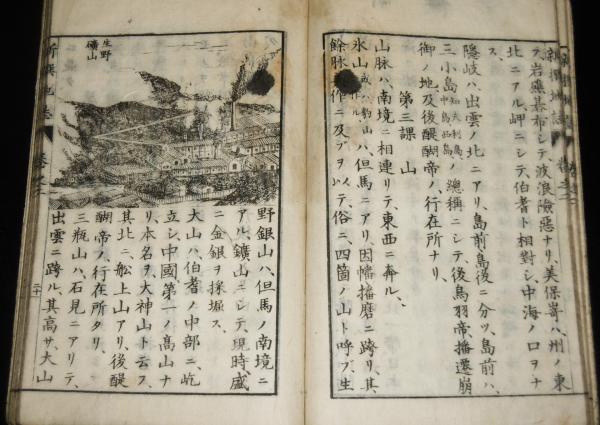 ヲ、岩礁碁布シテ、波浪險惡ナリ、美保﨑ハ、州ノ東
北ニアル岬ニシテ、伯耆ト相對シ、中海ノ口ヲナ
ス、
隱岐ハ、出雲ノ北ニアリ、島前島後ニ分ツ、島前ハ、
三小島 知夫利島 中島西島 ノ總稱ニシテ、後鳥羽帝播遷崩
御ノ地及後醍醐帝ノ、行在所ナリ、
第三課 山
山脉ハ、南境ニ相連リテ、東西ニ奔ル、
氷山 ハ、但馬ニアリ、因幡播磨ニ跨リ、其
餘脉 作ニ及ブヲ テ、俗ニ、四箇ノ山ト呼ブ、生
生野
礦山
野銀山ハ、但馬ノ南境ニ
アル、鑛山ニシテ、現時盛
ニ金銀ヲ採堀ス、
大山ハ、伯耆ノ中部ニ屹
立シ、中國第一ノ髙山ナ
リ、本名ヲ、大神山ト云フ、
其北ニ、船上山アリ、後醍
醐帝ノ、行在所タリ、
三瓶山ハ、石見ニアリテ、
出雲ニ跨ル、其高サ、大山
新撰地誌 卷之二
二十